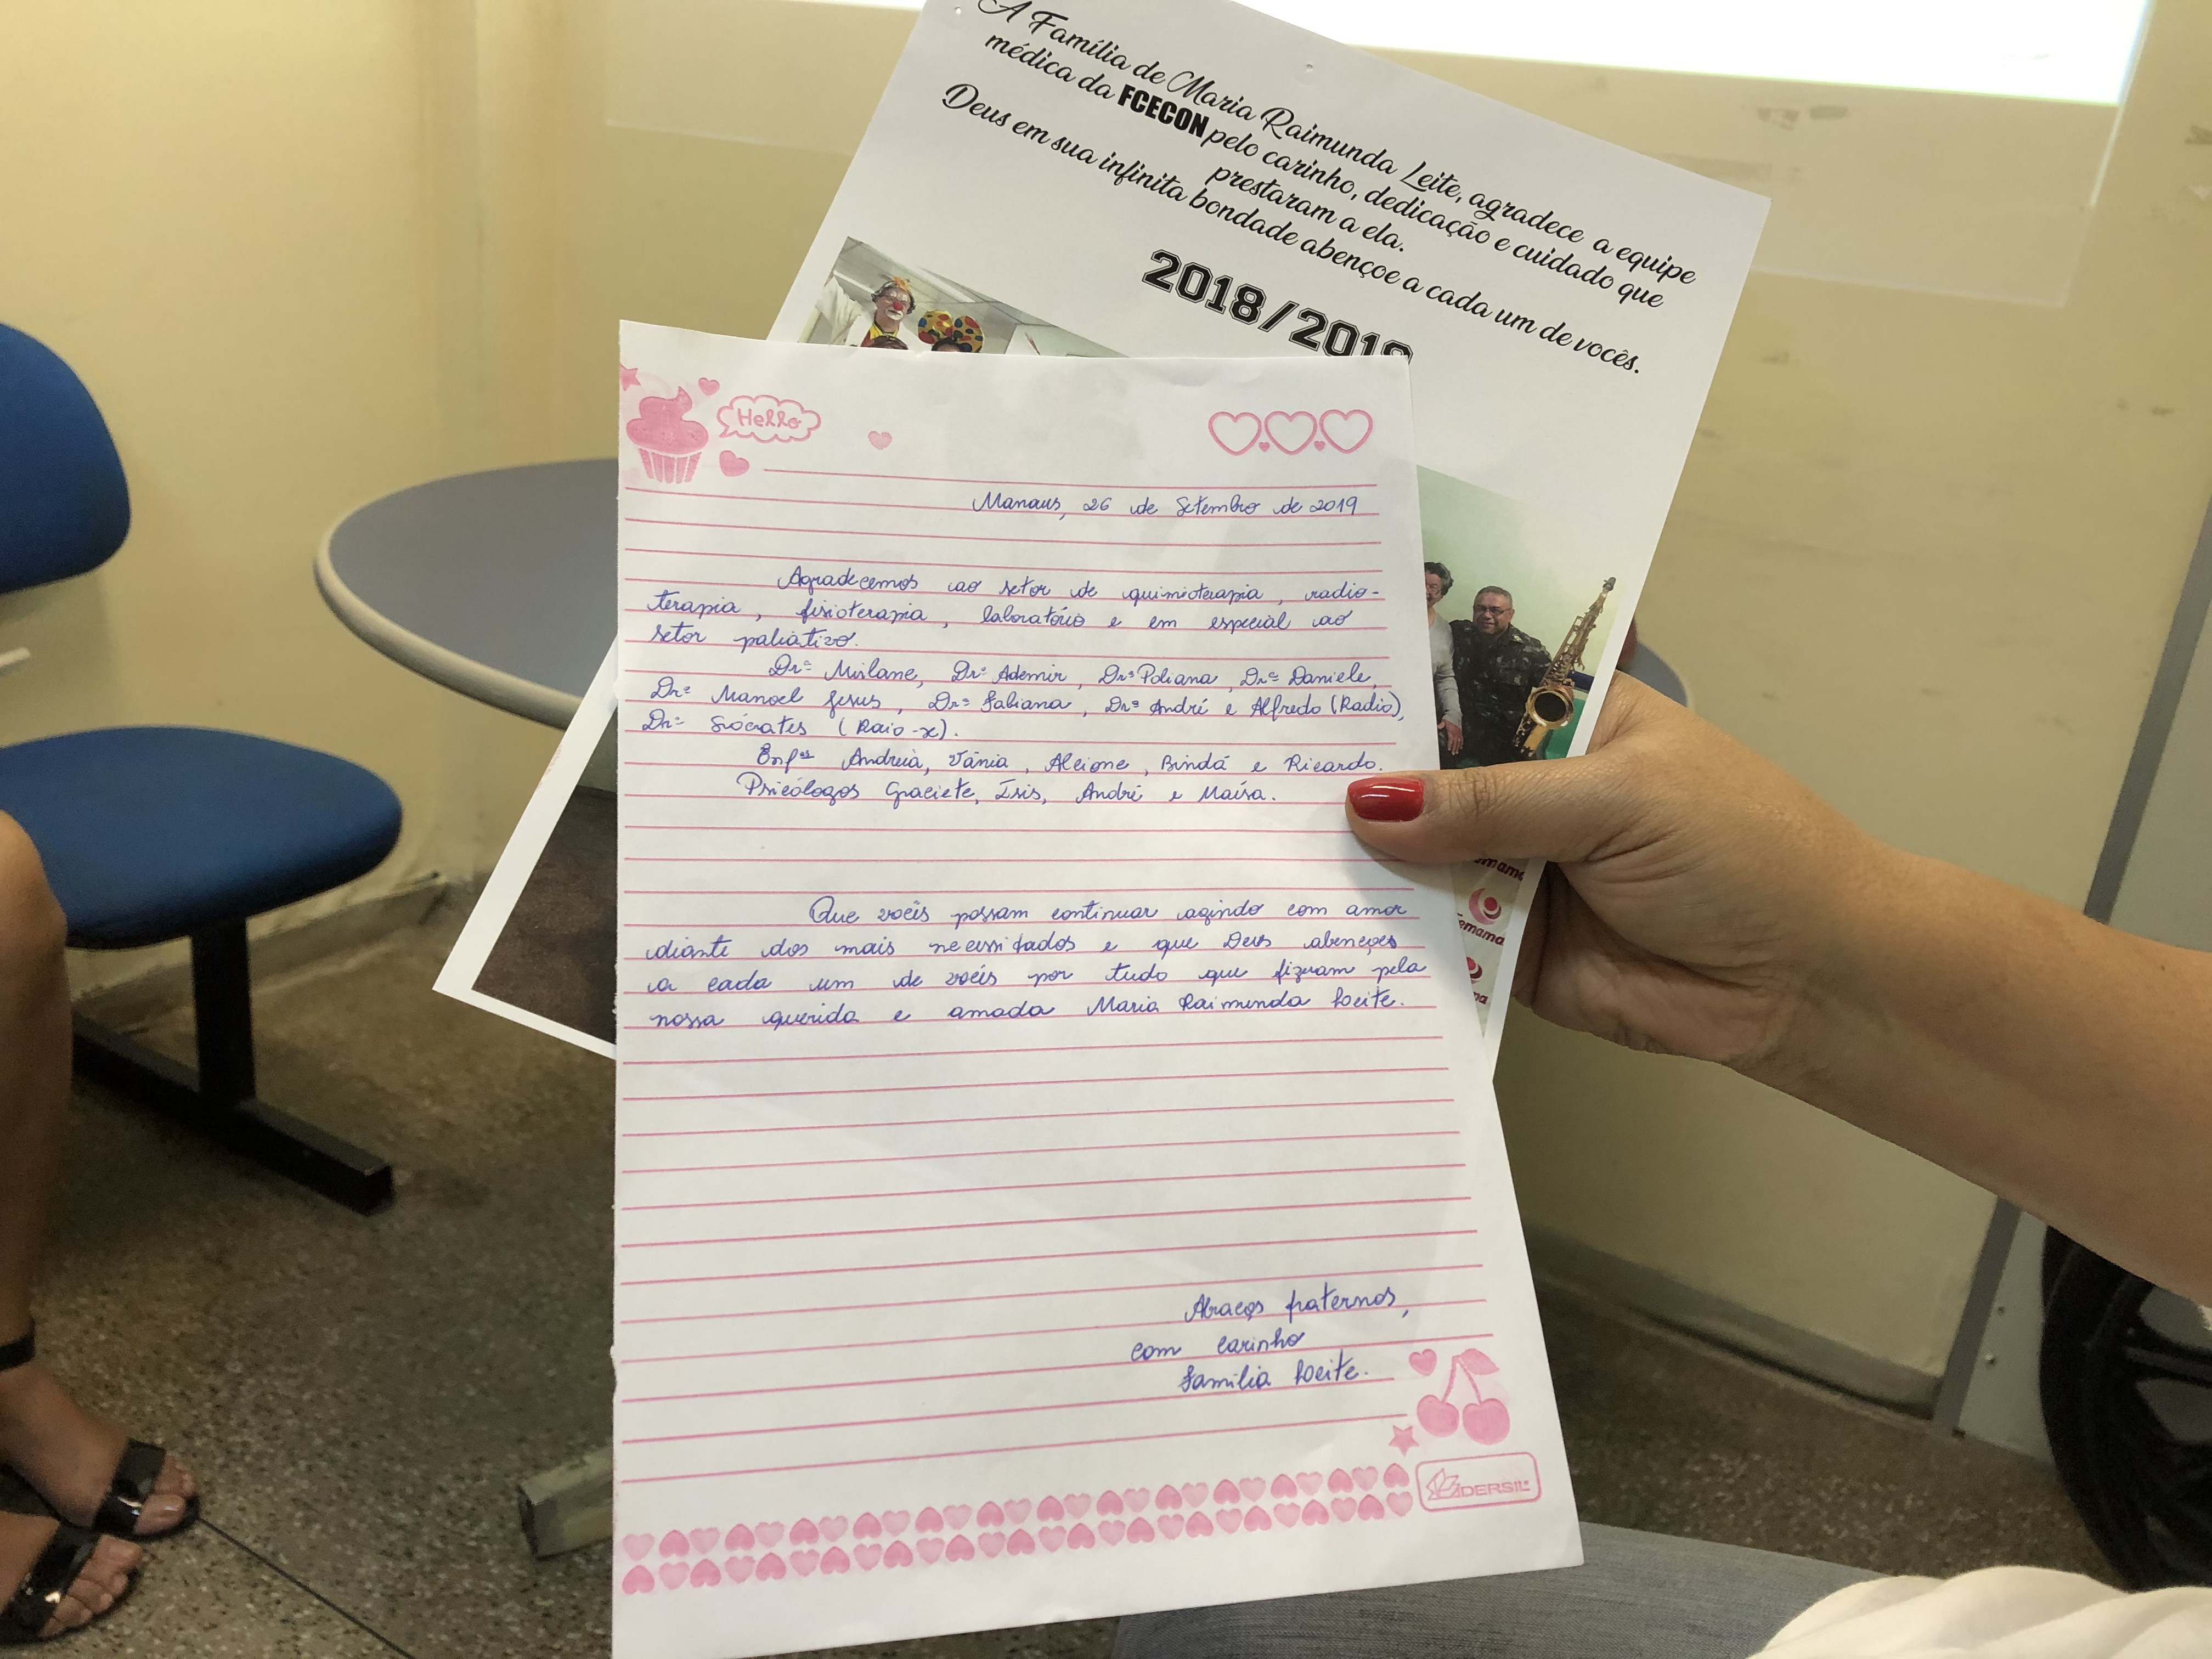 A Família de Maria Raimunda Leite, agradece a equipe
médica da FCECON pelo carinho, dedicação e cuidado que
prestaram a ela.
Deus em sua infinita bondade abençoe a cada um de vocês.
2018/2019
Hello
Manaus, 26 de Setembro de 2019
Agradecemos ao setor de quimioterapia, radio-
terapia, fisioterapia, laboratório e em especial ao
setor paliativo.
Drª Mirlane, Drº Ademir, Drª Poliana, Drª Daniele,
Drº Manoel Jesus, Drª Fabiana, Drº André e Alfredo (Radio),
Drº Sócrates (Raio-x).
Enfªs Andreia, Vânia, Alcione, Bindá e Ricardo.
Psicólogos Graciete, Isis, André e Maísa.
Que vocêis possam continuar agindo com amor
diante dos mais necessitados e que Deus abençoes
a cada um de vocêis por tudo que fizeram pela
nossa querida e amada Maria Raimunda Leite.
Abraços fraternos,
com carinho
Familia Leite.
DERSIL
femama